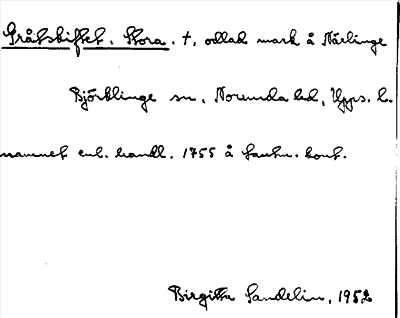 Gråtskiftet. Stora. †, odlad mark å Närlinge
Björklinge sn, Norunda hd, Upps. l.
namnet enl. handl. 1755 å Lantm. kont.
Birgitta Sandelin, 1952